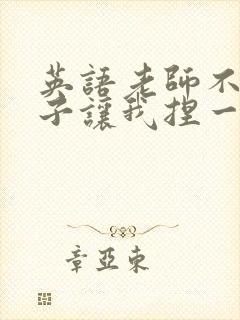 英語老師不
子讓我捏一
章亞東